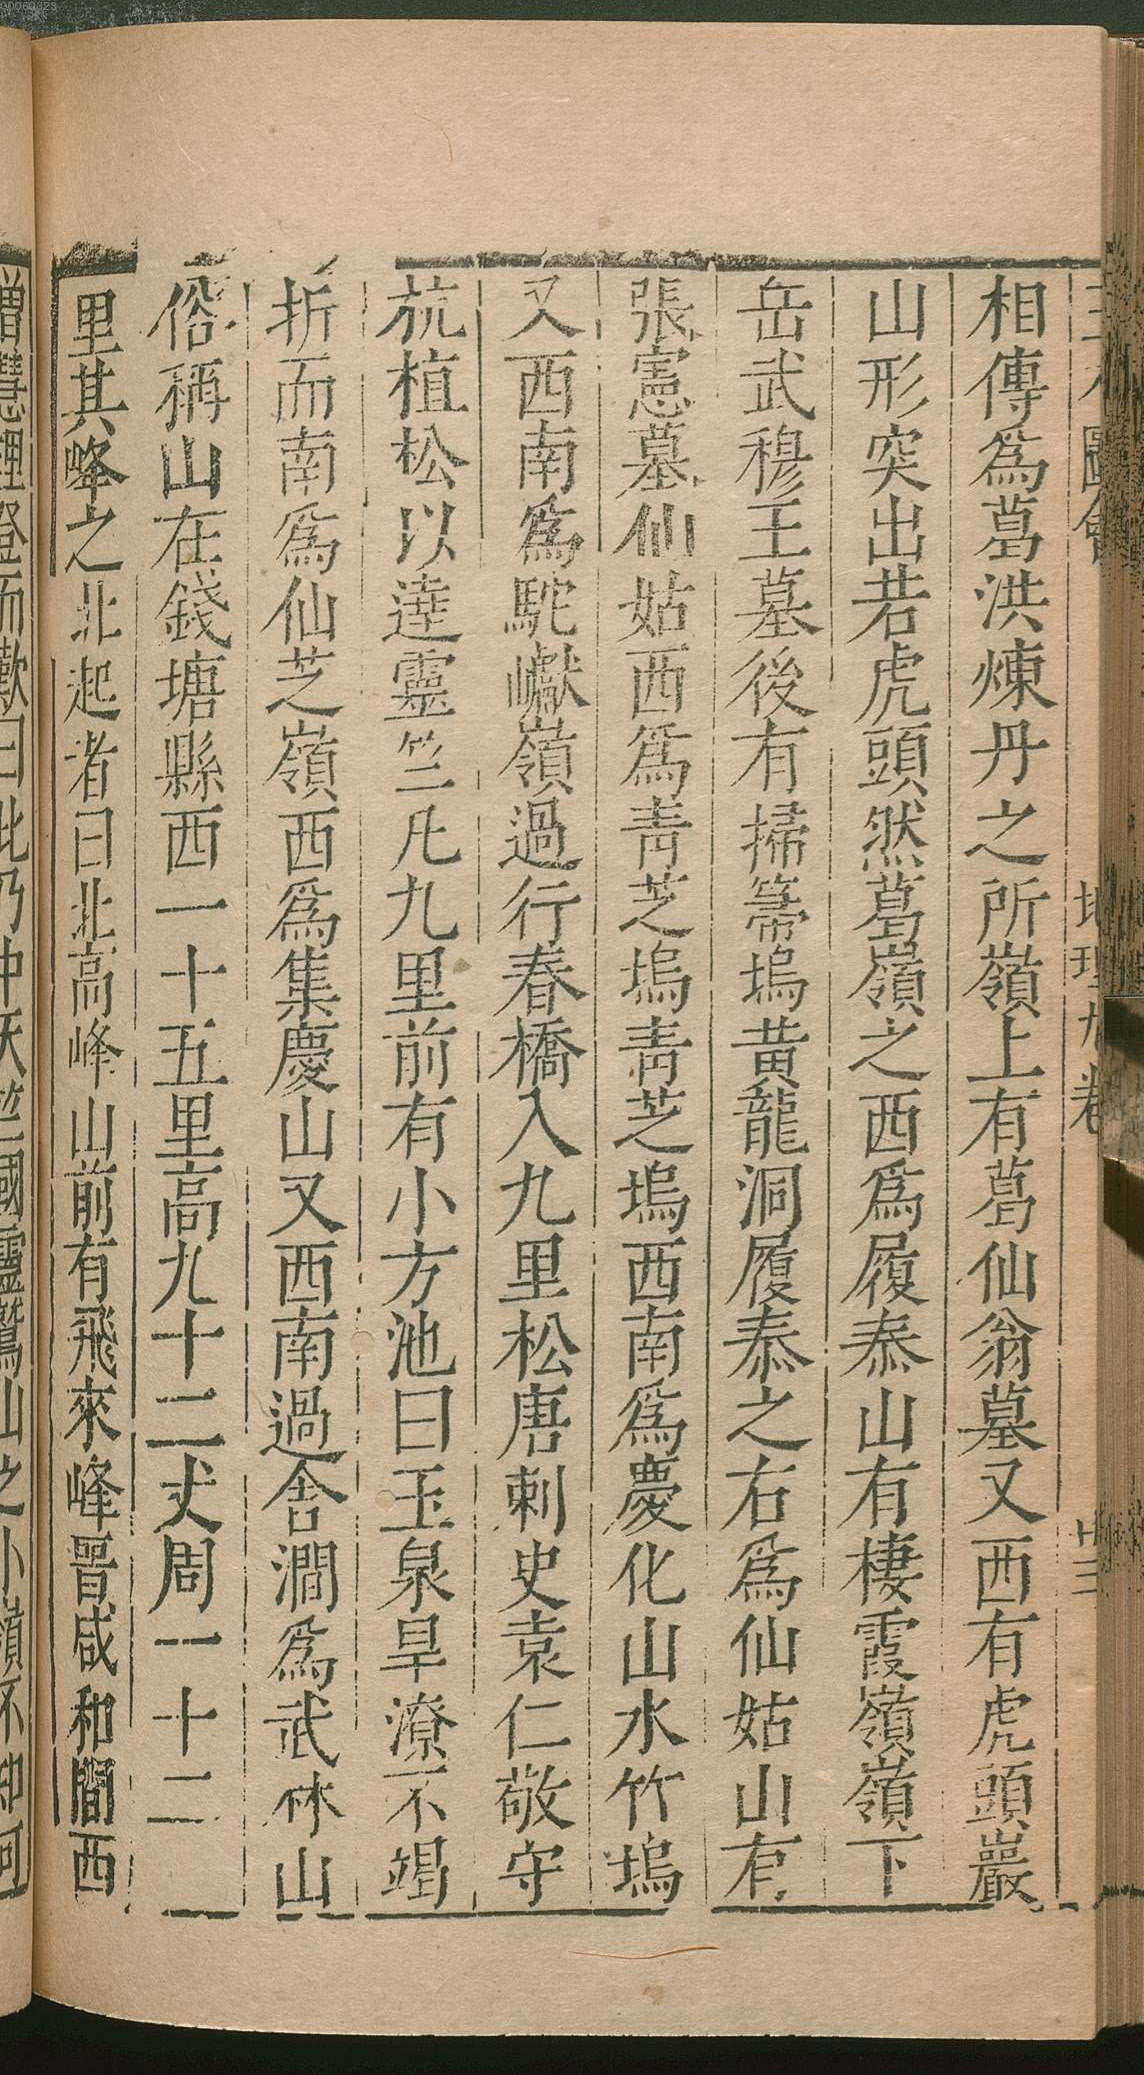 三才圖會 地理九卷 廿三
相傳爲葛洪煉丹之所嶺上有葛仙翁墓又西有虎頭巖
山形突出若虎頭然葛嶺之西爲履泰山有棲霞嶺嶺下
岳武穆王墓後有掃箒塢黃龍洞履泰之右爲仙姑山有
張憲墓仙姑西爲青芝塢青芝塢西南爲慶化山水竹塢
又西南爲駝巘嶺過行春橋入九里松唐刺史袁仁敬守
杭植松以達靈竺凡九里前有小方池曰玉泉旱潦不竭
折而南爲仙芝嶺西爲集慶山又西南過舍澗爲武林山
俗稱山在錢塘縣西一十五里高九十二丈周一十二
里其峰之北起者曰北高峰山前有飛來峰晉咸和間西
僧慧理登而歎曰此乃中天竺國靈鷲山之小嶺不知何
00060323